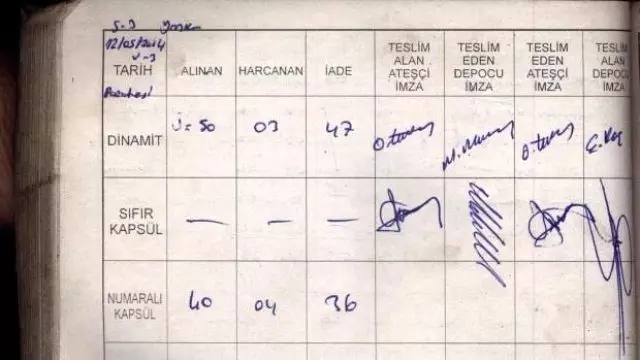 S-3
12/05/2014
TARİH ALINAN HARCANAN İADE TESLİM ALAN ATEŞÇİ İMZA TESLİM EDEN DEPOCU İMZA TESLİM EDEN ATEŞÇİ İMZA TESLİM ALAN DEPOCU İMZA
DİNAMİT 50 03 47
SIFIR KAPSÜL — — —
NUMARALI KAPSÜL 40 04 36